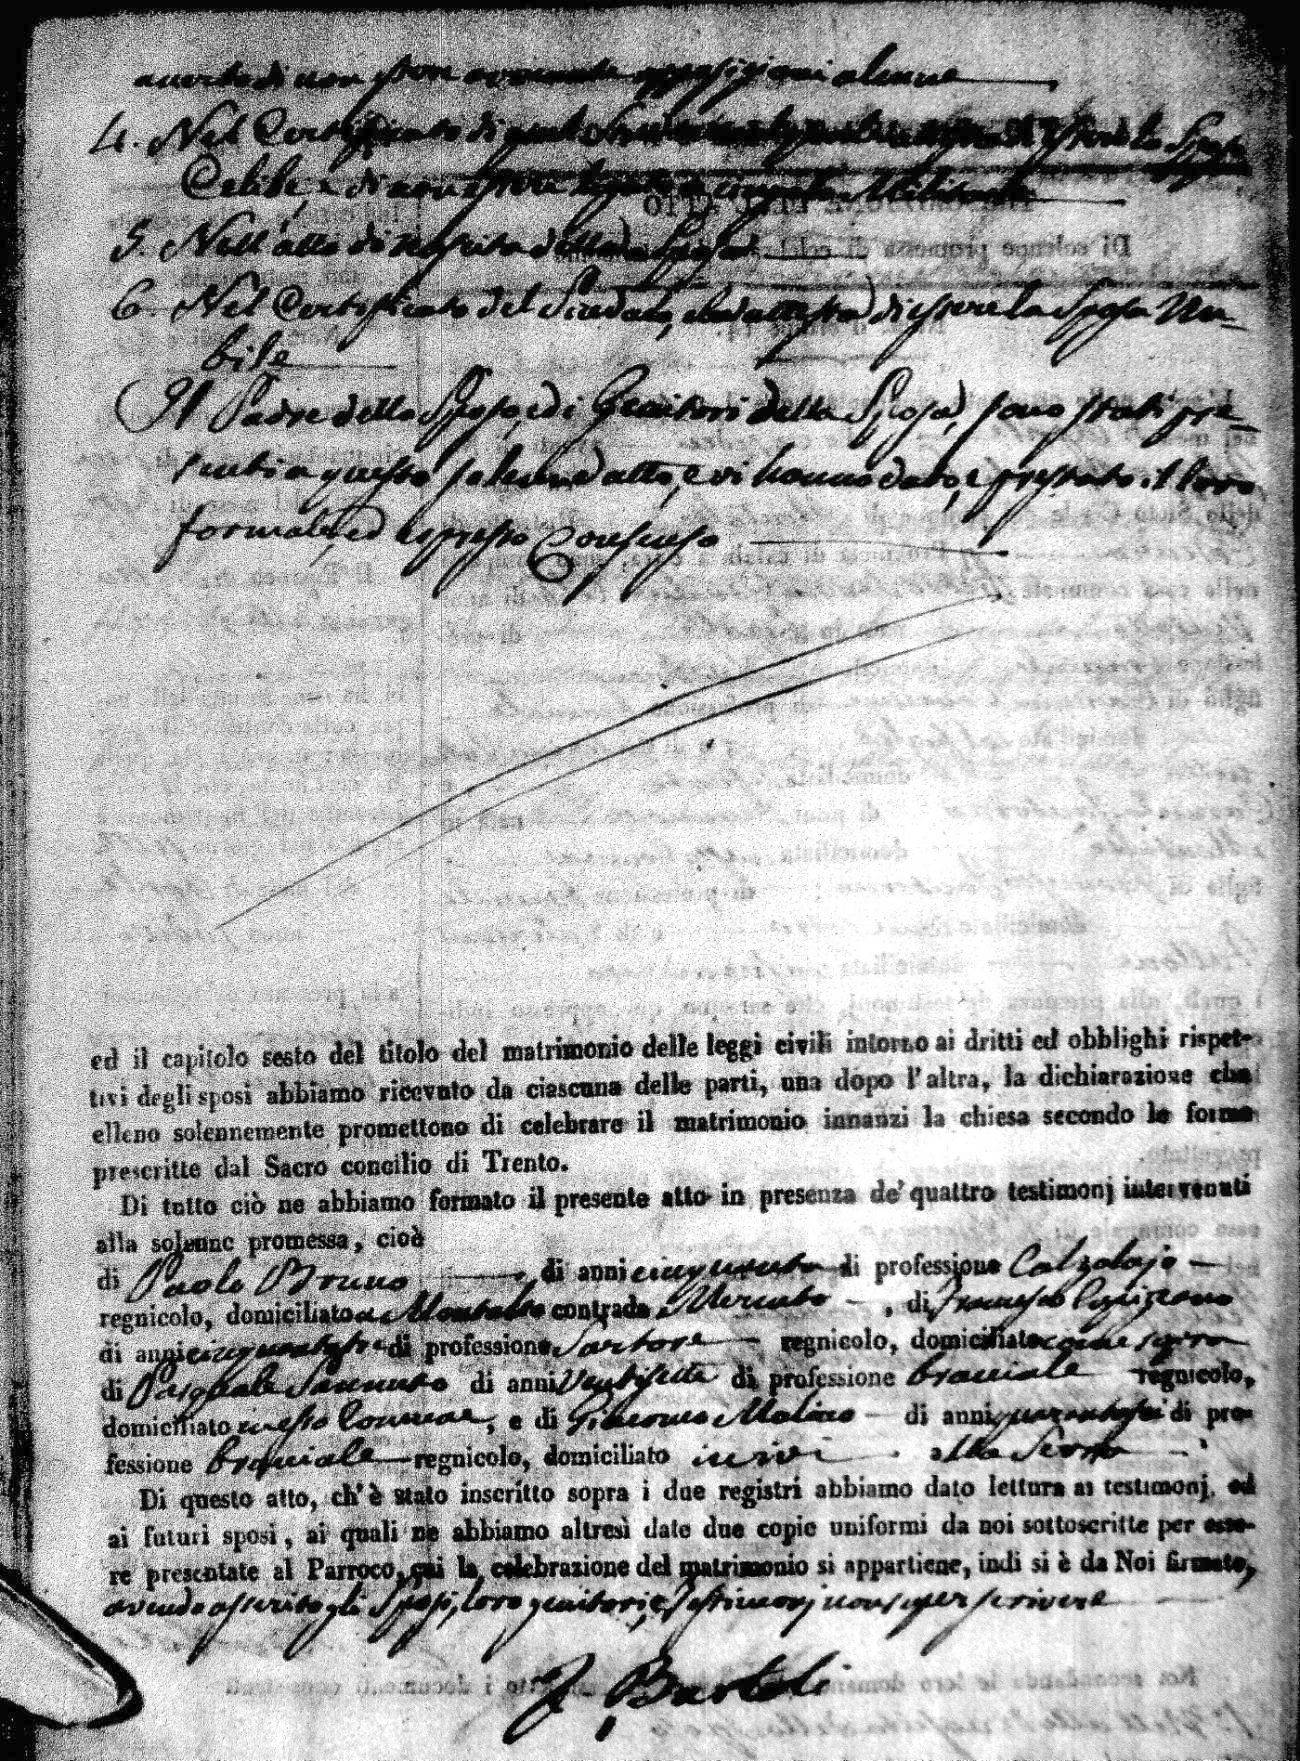 di non opposizioni alcune
4. Nel Certificato di la Sposo
Celibe, e di non essere
5. Nell'atto di nascita della Sposa
6. Nel Certificato del Sindaco, di essere la Sposa Nu-
bile
Il Padre dello Sposo, e di Genitori della Sposa, sono stati pre-
senti a questo solenne atto, e vi hanno dato, e prestato il loro
formale, ed espresso Consenso
ed il capitolo sesto del titolo del matrimonio delle leggi civili intorno ai dritti ed obblighi rispet-
tivi degli sposi abbiamo ricevuto da ciascuna delle parti, una dopo l'altra, la dichiarazione che
elleno solennemente promettono di celebrare il matrimonio innanzi la chiesa secondo le forme
prescritte dal Sacro concilio di Trento.
Di tutto ciò ne abbiamo formato il presente atto in presenza de' quattro testimonj intervenuti
alla solenne promessa, cioè
di Paolo Bruno, di anni cinquanta di professione Calzolajo
regnicolo, domiciliato a Montalto contrada Mercato, di Francesco
di anni di professione Sartore regnicolo, domiciliato come sopra
di Pasquale di anni Ventisette di professione bracciale regnicolo,
domiciliato in esso Comune, e di Giacomo Molino di anni di pro-
fessione bracciale regnicolo, domiciliato ivi alla Serra
Di questo atto, ch'è stato inscritto sopra i due registri abbiamo dato lettura ai testimonj, ed
ai futuri sposi, ai quali ne abbiamo altresì date due copie uniformi da noi sottoscritte per esse-
re presentate al Parroco, cui la celebrazione del matrimonio si appartiene, indi si è da Noi firmato,
avendo asserito gli Sposi, loro genitori, e Testimonj non saper scrivere
Bartoli